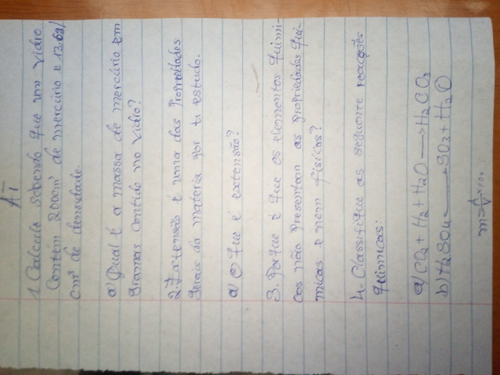 AI
1. Calcula sabendo que num vidro
Contém 200cm³ de mercúrio e 13,6g/
cm³ de densidade.
a) Qual é a massa de mercúrio em
gramas contido no vidro?
2. Extensão é uma das Propriedades
gerais da materia por tu estudo.
a) O que é extensão?
3. Porque é que os elementos químicos
cos não presentam as propriedades quí-
micas e nem físicas?
4. Classifique as seguinte reacções
químicas:
a) CO₂ + H₂ + H₂O → H₂CO₃
b) H₂SO₄ → SO₃ + H₂O